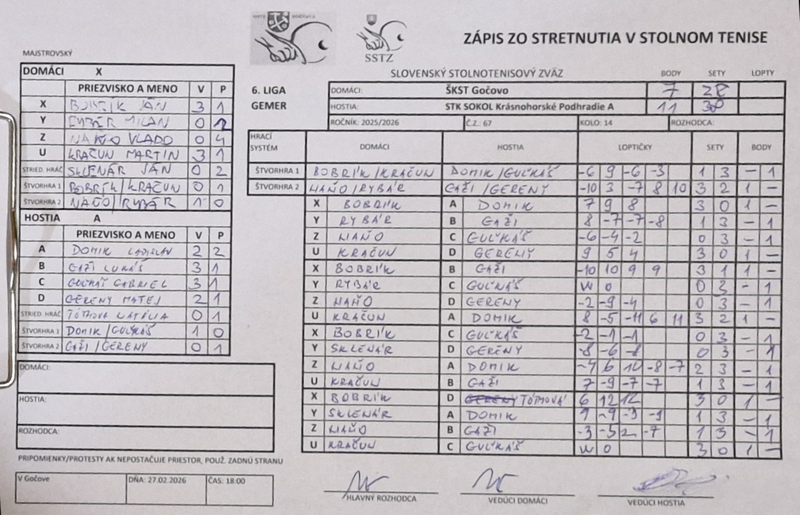 SSTZ
ZÁPIS ZO STRETNUTIA V STOLNOM TENISE
MAJSTROVSKÝ
SLOVENSKÝ STOLNOTENISOVÝ ZVÄZ BODY SETY LOPTY
DOMÁCI X
6. LIGA DOMÁCI: ŠKST Gočovo 7 28
GEMER HOSTIA: STK SOKOL Krásnohorské Podhradie A 11 38
ROČNÍK: 2025/2026 Č.Z.: 67 KOLO: 14 ROZHODCA:
PRIEZVISKO A MENO V P
X BOBRÍK JÁN 3 1
Y RYBÁR MILAN 0 2
Z HAŇO VLADO 0 4
U KRAČUN MARTIN 3 1
STRIED. HRÁČ SKLENÁR JÁN 0 2
ŠTVORHRA 1 BOBRÍK/KRAČUN 0 1
ŠTVORHRA 2 HAŇO/RYBÁR 1 0
HOSTIA A
PRIEZVISKO A MENO V P
A DOMIK LADISLAV 2 2
B GAŽI LUKÁŠ 3 1
C GUĽKÁŠ GABRIEL 3 1
D GERENY MATEJ 2 1
STRIED. HRÁČ TÓTHOVÁ 0 1
ŠTVORHRA 1 DOMIK/GUĽKÁŠ 1 0
ŠTVORHRA 2 GAŽI/GERENY 0 1
DOMÁCI:
HOSTIA:
ROZHODCA:
PRIPOMIENKY/PROTESTY AK NEPOSTAČUJE PRIESTOR, POUŽ. ZADNÚ STRANU
V Gočove DŇA: 27.02.2026 ČAS: 18:00
HRACÍ SYSTÉM DOMÁCI HOSTIA LOPTIČKY SETY BODY
ŠTVORHRA 1 BOBRÍK/KRAČUN DOMIK/GUĽKÁŠ -6 9 -6 -3 1 3 - 1
ŠTVORHRA 2 HAŇO/RYBÁR GAŽI/GERENY -10 3 -7 8 10 3 2 1 -
X BOBRÍK A DOMIK 7 9 8 3 0 1 -
Y RYBÁR B GAŽI 8 -7 -7 -8 1 3 - 1
Z HAŇO C GUĽKÁŠ -6 -4 -2 0 3 - 1
U KRAČUN D GERENY 9 5 4 3 0 1 -
X BOBRÍK B GAŽI -10 10 9 9 3 1 1 -
Y RYBÁR C GUĽKÁŠ W O 0 3 - 1
Z HAŇO D GERENY -2 -9 -4 0 3 - 1
U KRAČUN A DOMIK 8 -5 -11 6 11 3 2 1 -
X BOBRÍK C GUĽKÁŠ -2 -1 -1 0 3 - 1
Y SKLENÁR D GERENY -8 -6 -8 0 3 - 1
Z HAŇO A DOMIK -4 6 10 -8 -7 2 3 - 1
U KRAČUN B GAŽI 7 -9 -7 -7 1 3 - 1
X BOBRÍK D GERENY TÓTHOVÁ 6 12 12 3 0 1 -
Y SKLENÁR A DOMIK 9 -9 -3 -9 1 3 - 1
Z HAŇO B GAŽI -3 -5 2 -7 1 3 - 1
U KRAČUN C GUĽKÁŠ W O 3 0 1 -
HLAVNÝ ROZHODCA VEDÚCI DOMÁCI VEDÚCI HOSTIA